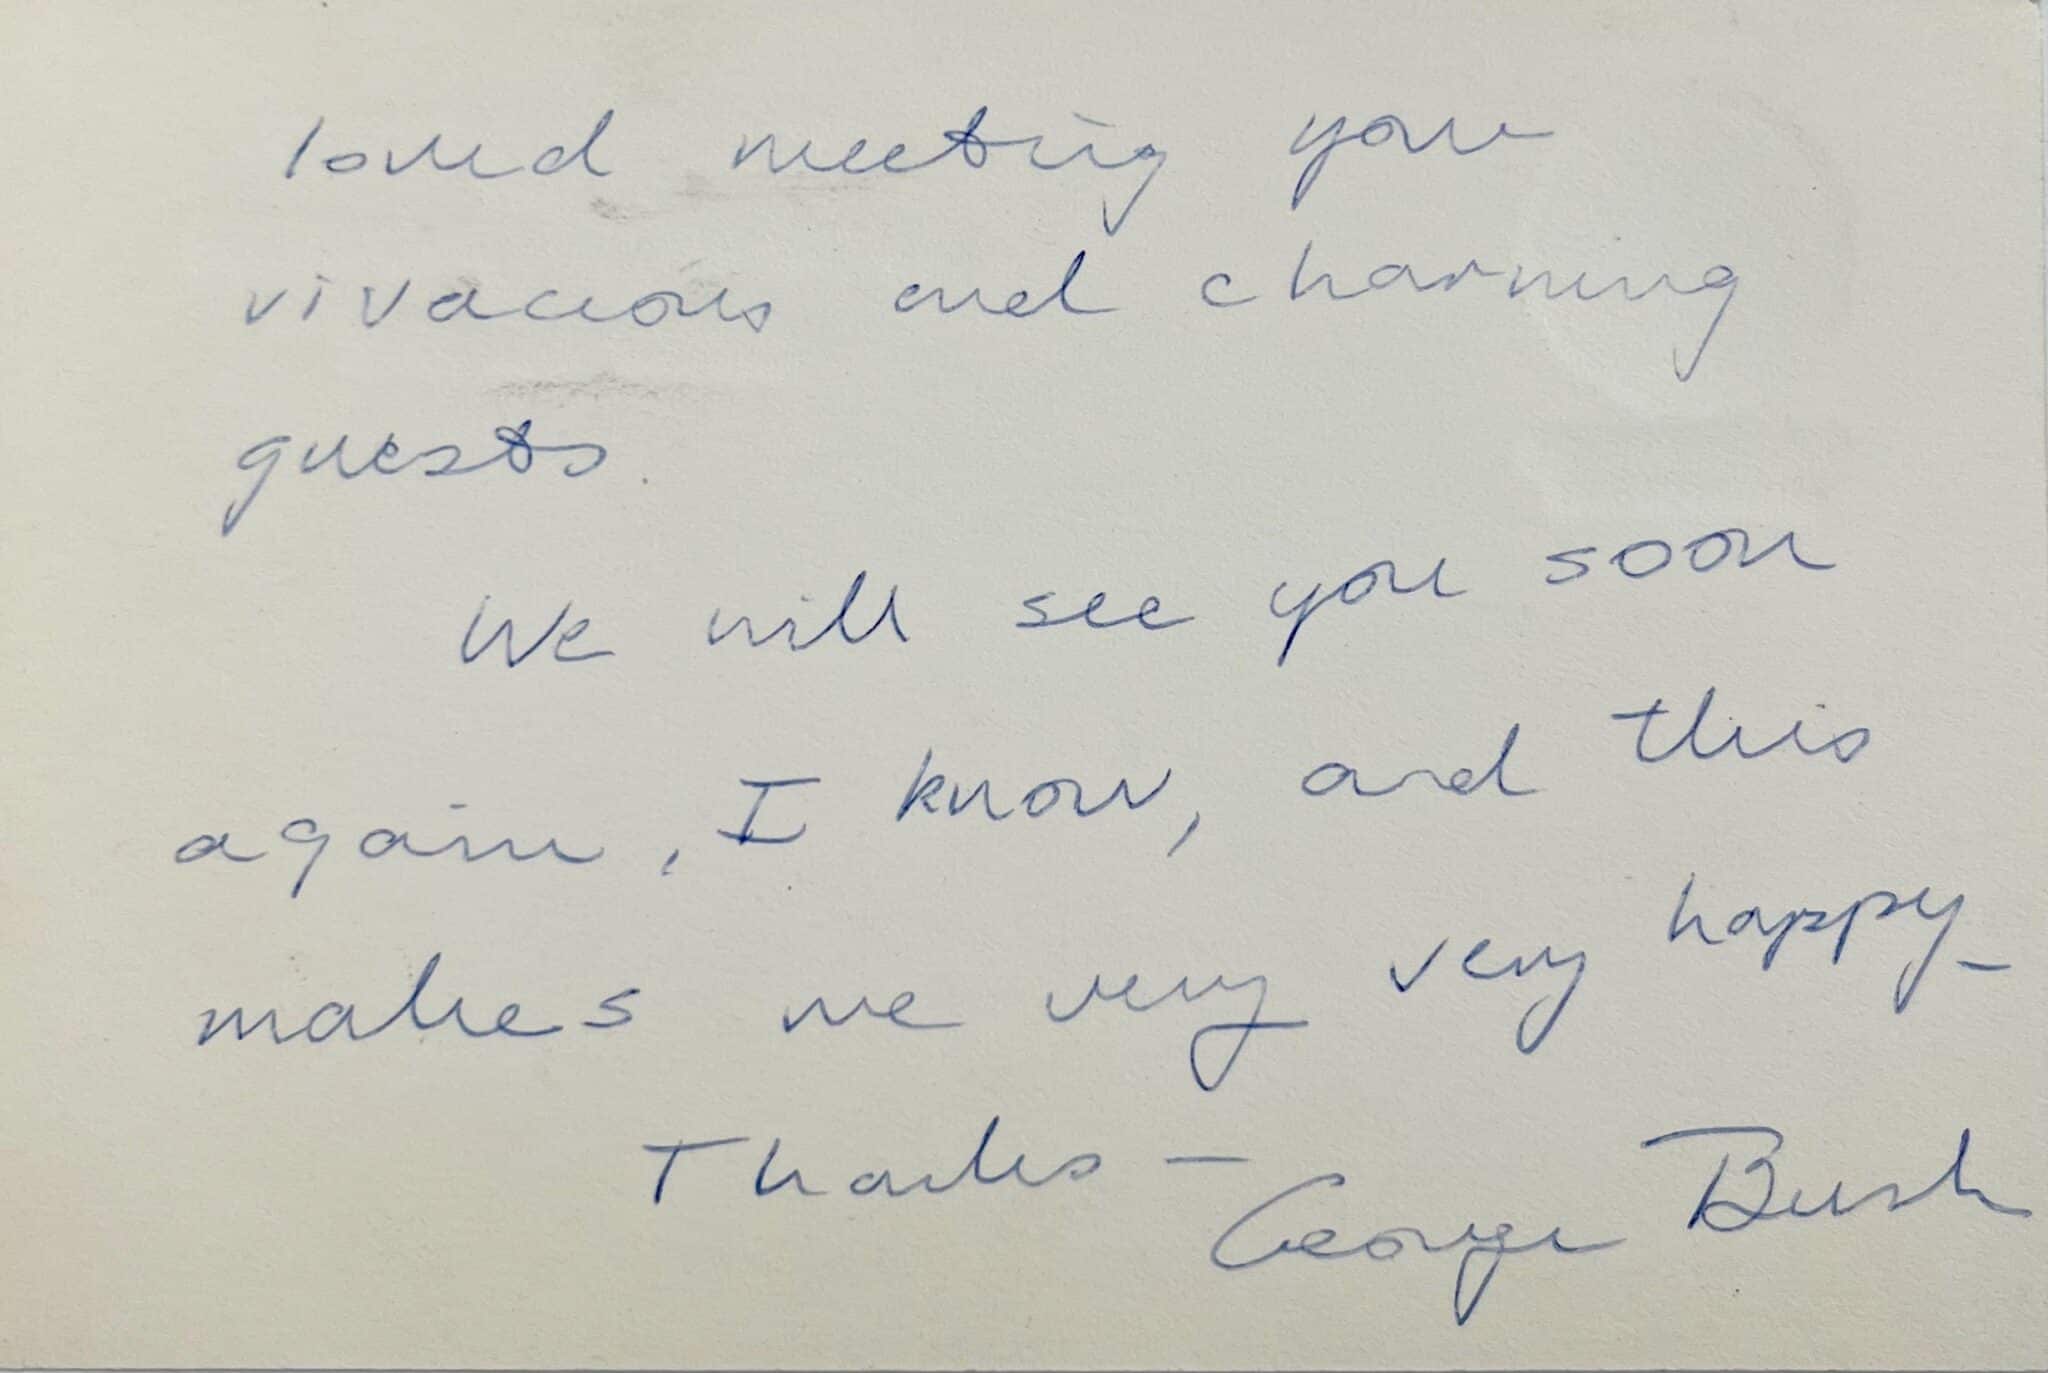 loved meeting your
vivacious and charming
guests.
We will see you soon
again, I know, and this
makes me very very happy—
Thanks — George Bush